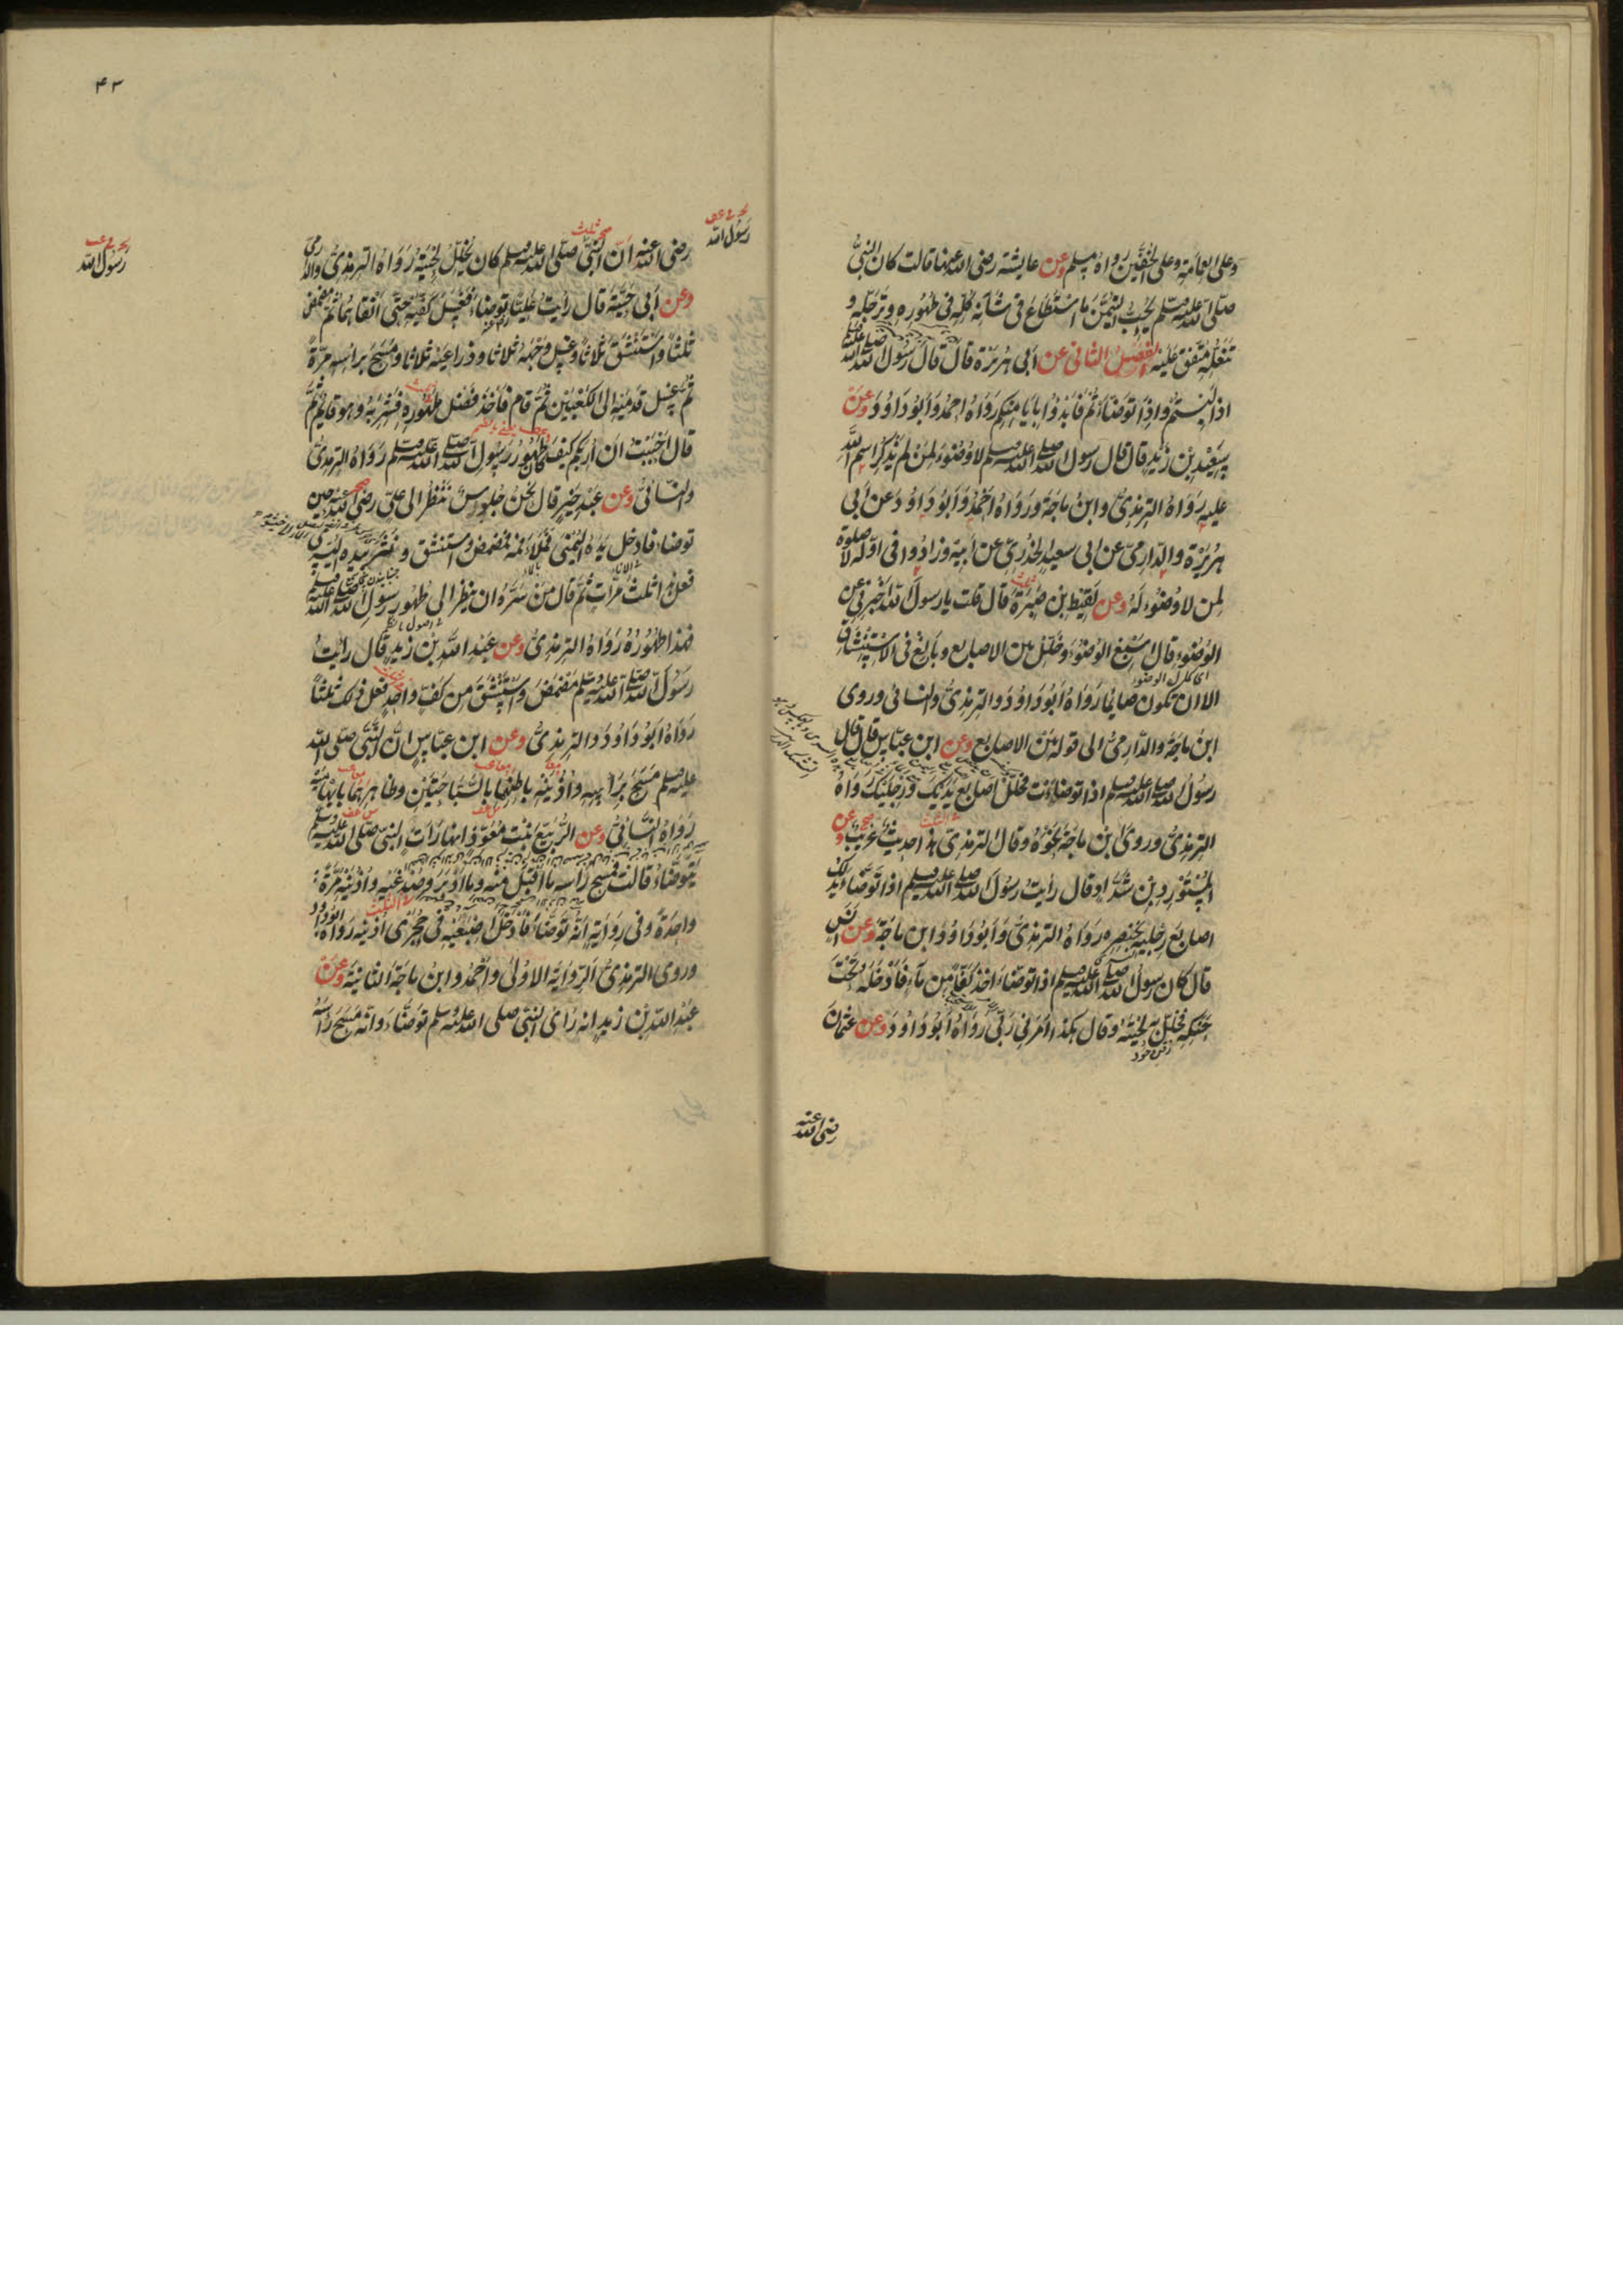 وعلى العمامة وعلى الخفين رواه مسلم وعن عايشة رضى الله عنها قالت كان النبى
صلى الله عليه وسلم يحب التيمن ما استطاع فى شأنه كله فى طهوره وترجله و
تنعله متفق عليه الفصل الثانى عن ابى هريرة قال قال رسول الله صلى الله عليه وسلم
اذا لبستم واذا توضأتم فابدؤا بايامنكم رواه احمد وابو داود وعن
سعيد بن زيد قال قال رسول الله صلى الله عليه وسلم لا وضوء لمن لم يذكر اسم الله
عليه رواه الترمذى وابن ماجة ورواه احمد وابو داود عن ابى
هريرة والدارمى عن ابى سعيد الخدرى عن ابيه وزادوا فى اوله لا صلوة
لمن لا وضوء له وعن لقيط بن صبرة قال قلت يا رسول الله اخبرنى عن
الوضوء قال اسبغ الوضوء وخلل بين الاصابع وبالغ فى الاستنشاق
الا ان تكون صايما رواه ابو داود والترمذى والنسائى وروى
ابن ماجة والدارمى الى قوله بين الاصابع وعن ابن عباس قال قال
رسول الله صلى الله عليه وسلم اذا توضأت فخلل اصابع يديك ورجليك رواه
الترمذى وروى ابن ماجة نحوه وقال الترمذى هذا حديث غريب وعن
المستورد بن شداد قال رأيت رسول الله صلى الله عليه وسلم اذا توضأ يدلك
اصابع رجليه بخنصره رواه الترمذى وابو داود وابن ماجة وعن انس
قال كان رسول الله صلى الله عليه وسلم اذا توضأ اخذ كفا من ماء فادخله تحت
حنكه فخلل به لحيته وقال هكذا امرنى ربى رواه ابو داود وعن عثمان
رضى الله عنه
٤٣
رسول الله
رسول الله
رضى الله عنه ان النبى صلى الله عليه وسلم كان يخلل لحيته رواه الترمذى والدارمى
وعن ابى حية قال رأيت عليا توضأ فغسل كفيه حتى انقاهما ثم مضمض
ثلثا واستنشق ثلاثا وغسل وجهه ثلاثا وذراعيه ثلاثا ومسح براسه مرة
ثم غسل قدميه الى الكعبين ثم قام فاخذ فضل طهوره فشربه وهو قايم ثم
قال احببت ان اريكم كيف كان طهور رسول الله صلى الله عليه وسلم رواه الترمذى
والنسائى وعن عبد خير قال نحن جلوس ننظر الى على رضى الله عنه حين
توضأ فادخل يده اليمنى فملأ فمه فمضمض واستنشق ونثر بيده اليسرى
فعل هذا ثلث مرات ثم قال من سره ان ينظر الى طهور رسول الله صلى الله عليه وسلم
فهذا طهوره رواه الترمذى وعن عبد الله بن زيد قال رأيت
رسول الله صلى الله عليه وسلم مضمض واستنشق من كف واحد فعل ذلك ثلثا
رواه ابو داود والترمذى وعن ابن عباس ان النبى صلى الله
عليه وسلم مسح برأسه واذنيه باطنهما بالسباحتين وظاهرهما بابهاميه
رواه النسائى وعن الربيع بنت معوذ انها رأت النبى صلى الله عليه وسلم
يتوضأ قالت فمسح رأسه ما اقبل منه وما ادبر وصدغيه واذنيه مرة
واحدة وفى رواية انه توضأ فادخل اصبعيه فى حجرى اذنيه رواه ابو داود
وروى الترمذى الرواية الاولى واحمد وابن ماجة الثانية وعن
عبد الله بن زيد انه رأى النبى صلى الله عليه وسلم توضأ وانه مسح رأسه